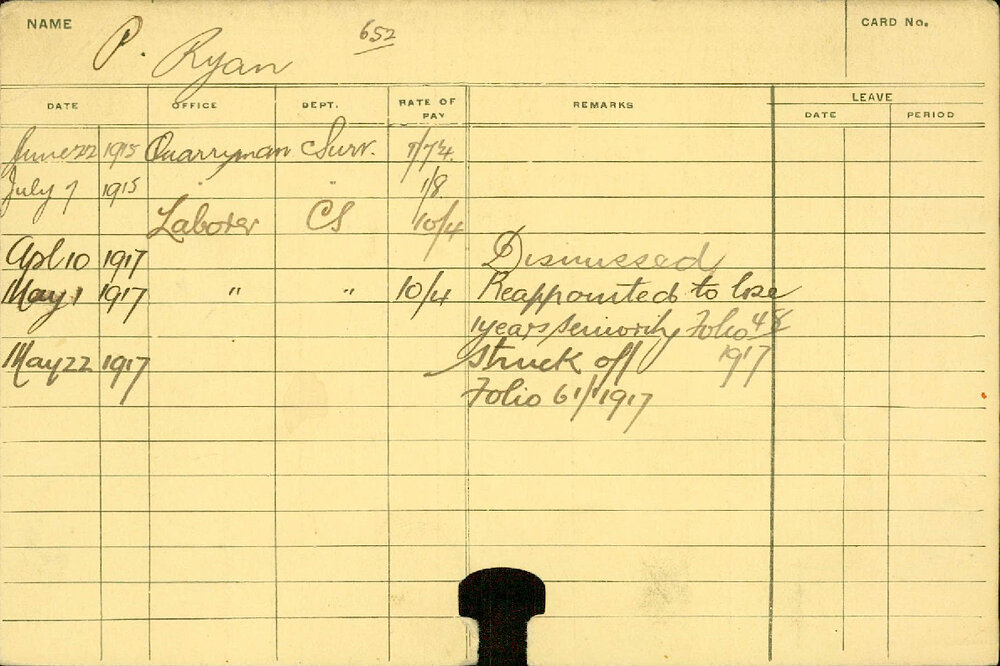 NAME P. Ryan 652 CARD No.
DATE OFFICE DEPT. RATE OF PAY REMARKS LEAVE
DATE PERIOD
June 22 1915 Quarryman Surv.
July 7 1915 " " 1/8
Laborer CS 10/4
Apl 10 1917 Dismissed
May 1 1917 " " 10/4 Reappointed to lose
1 years seniority Folio 48
May 22 1917 Struck off 1917
Folio 61/1917